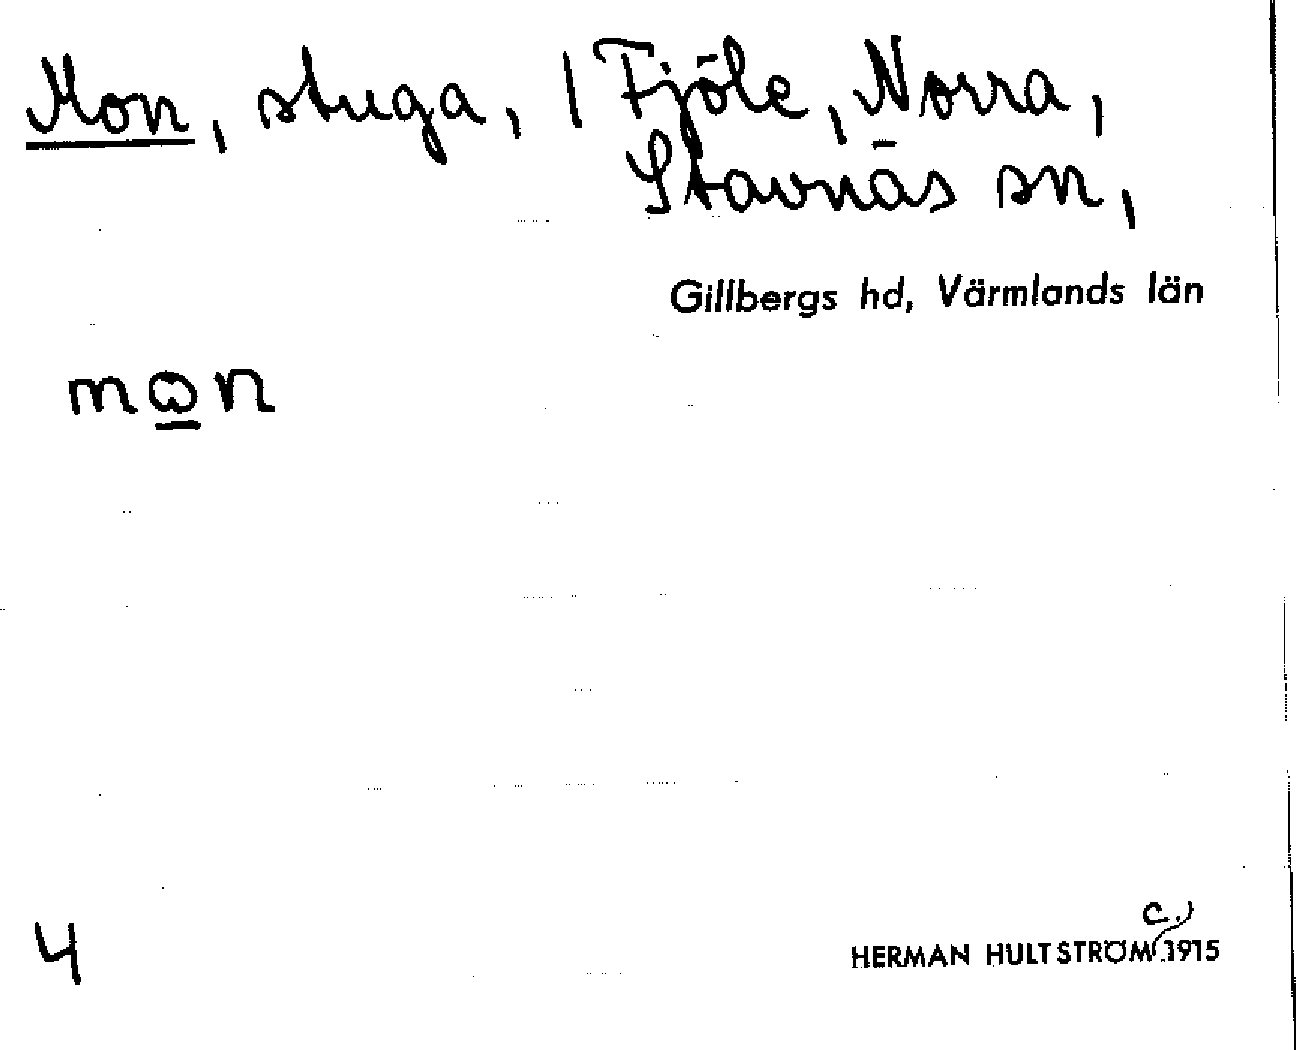 Mon, stuga, i Fjöle, Norra,
Stavnäs sn,
Gillbergs hd, Värmlands län
mꙍ̲n
4
HERMAN HULTSTRÖM c.) 1915